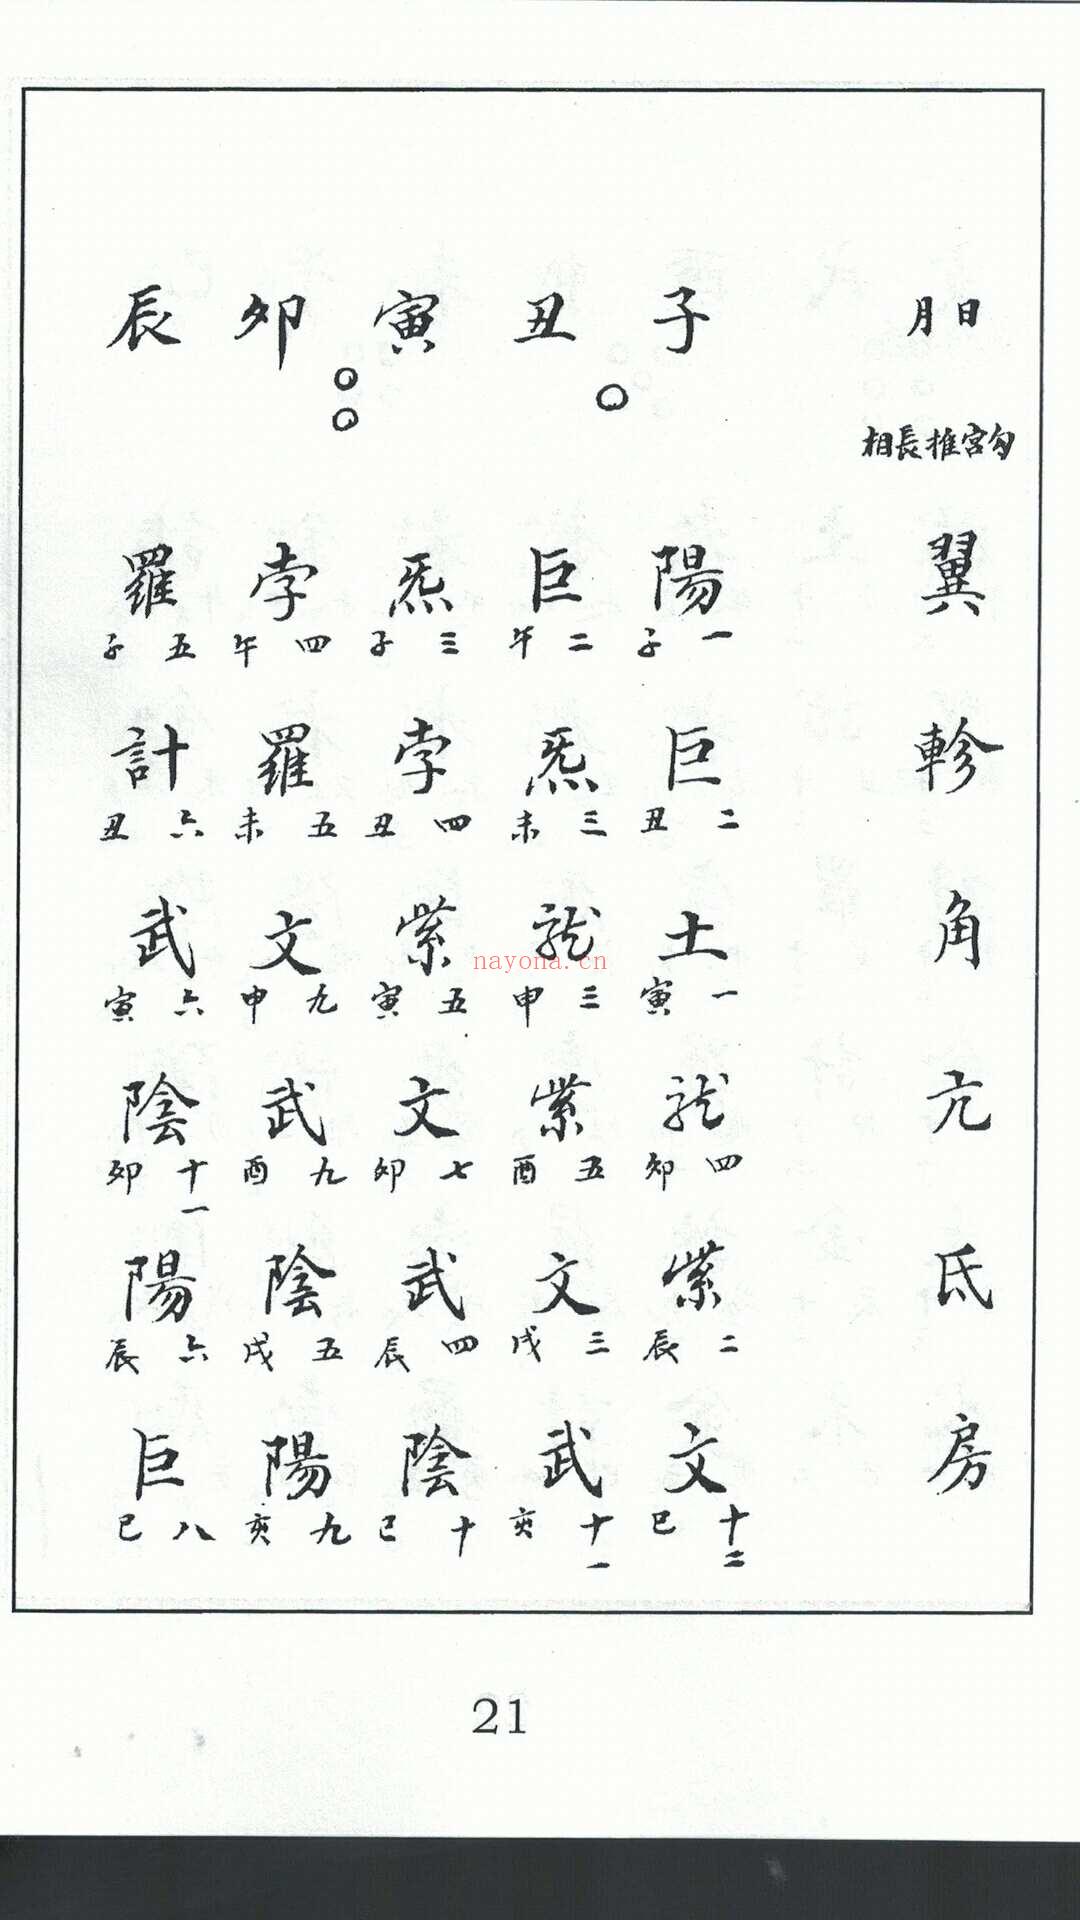 日月
相長推宮勾
翼 軫 角 亢 氐 房
子
陽 一子
巨 二丑
土 一寅
龍 四卯
紫 二辰
文 十二巳
丑
巨 二午
炁 三未
龍 三申
紫 五酉
文 三戌
武 十一亥
寅
炁 三子
孛 四丑
紫 五寅
文 七卯
武 四辰
陰 十巳
卯
孛 四午
羅 五未
文 九申
武 九酉
陰 五戌
陽 九亥
辰
羅 五子
計 六丑
武 六寅
陰 十一卯
陽 六辰
巨 八巳
nayona.cn
21